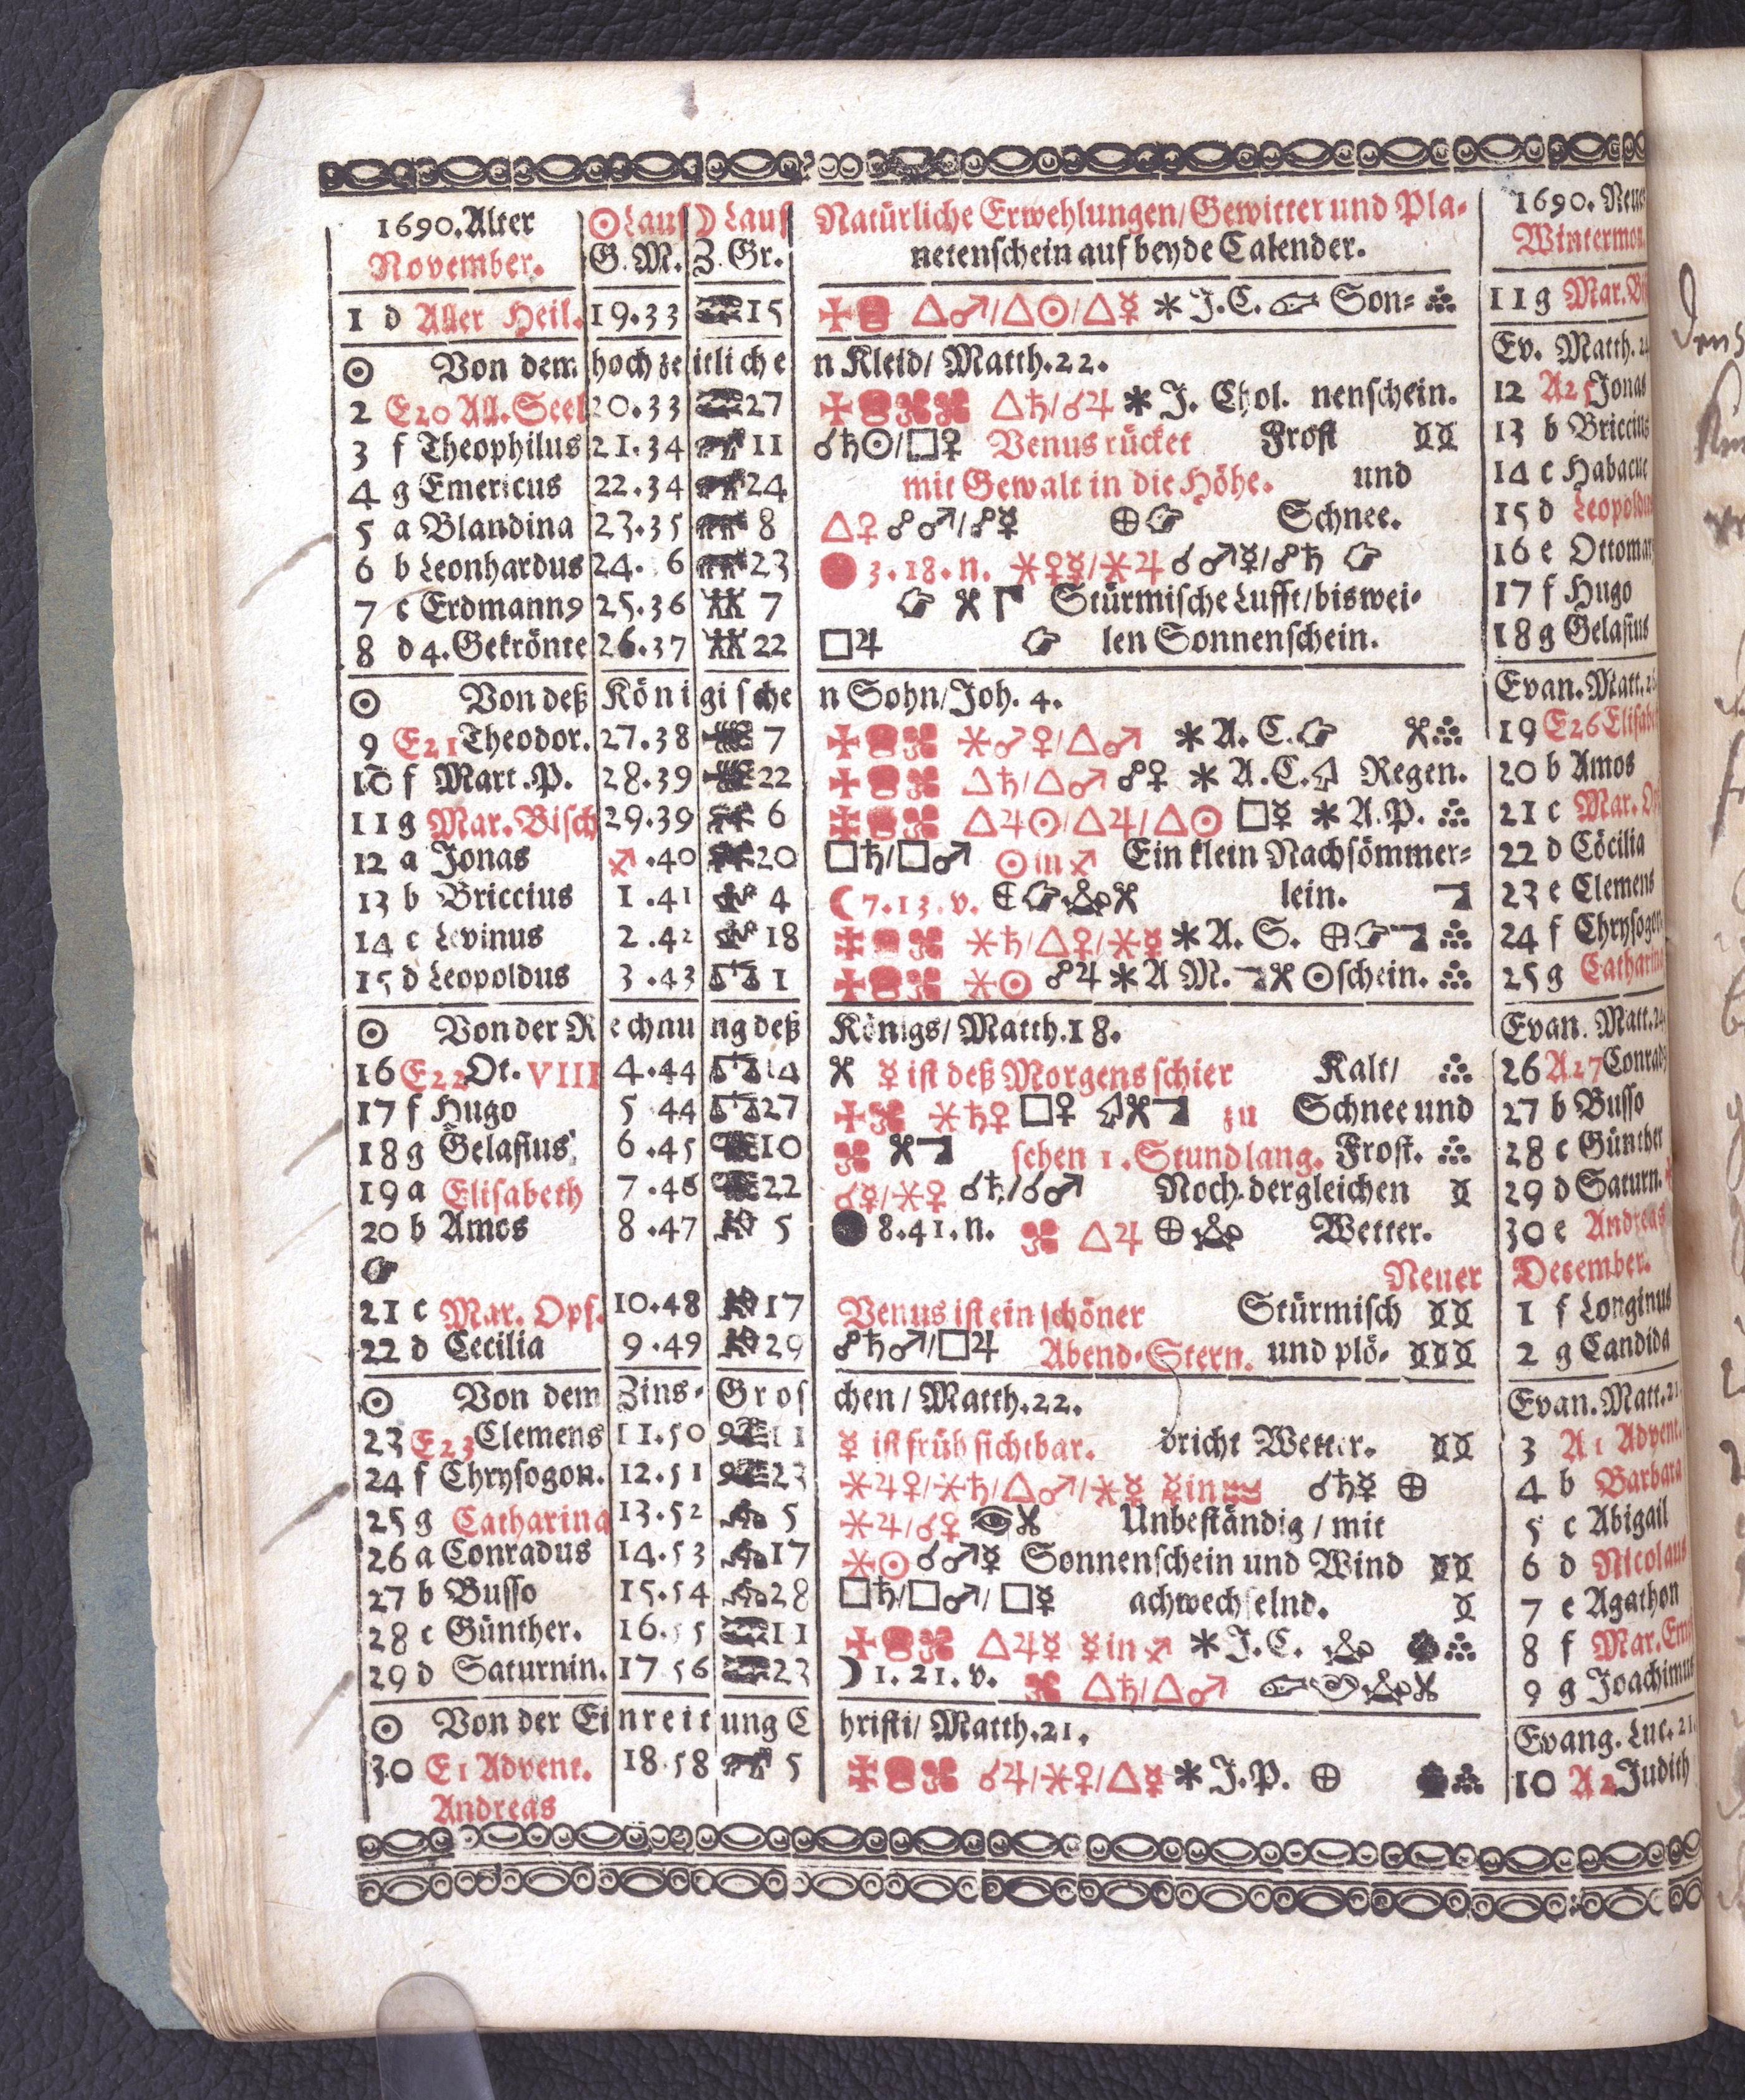 1690. Alter ☉ Lauf ☽ Lauf Natürliche Erwehlungen/ Gewitter und Pla- 1690. Neue
November. G. M. Z. Gr. netenschein auf beyde Calender. Wintermon.
1 d Aller Heil. 19.33 15 △♂/△☉/△☿ * J. C. Son= 11 g Mar. Bi
☉ Von dem hochzeitlichen Kleid/ Matth. 22. Ev. Matth. 24
2 E20 All. Seel 20.33 27 △♄/☌♃ * J. Chol. nenschein. 12 A25 Jonas
3 f Theophilus 21.34 11 ☌♄☉/□♀ Venus rücket Frost 13 b Briccius
4 g Emericus 22.34 24 mit Gewalt in die Höhe. und 14 c Habacuc
5 a Blandina 23.35 8 △♀ ☍♂/☍☿ ⊕ Schnee. 15 d Leopoldus
6 b Leonhardus 24. 6 23 3.18.n. *♀☿/*♃ ☌♂☿/☍♄ 16 e Ottomar
7 c Erdmann9 25.36 7 Stürmische Lufft/ biswei- 17 f Hugo
8 d 4. Gekrönte 26.37 22 □♃ len Sonnenschein. 18 g Gelasius
☉ Von deß Königischen Sohn/ Joh. 4. Evan. Matt.
9 E21 Theodor. 27.38 7 *♂♀/△♂ * A. C. 19 E26 Elisabet
10 f Mart. P. 28.39 22 △♄/△♂ ☍♀ * A. C. Regen. 20 b Amos
11 g Mar. Bisch 29.39 6 △♃☉/△♃/△☉ □☿ * A. P. 21 c Mar. Op
12 a Jonas ♐.40 20 □♄/□♂ ☉ in ♐ Ein klein Nachsömmer= 22 d Cöcilia
13 b Briccius 1.41 4 ☾ 7.13.v. ⊕ lein. 23 e Clemens
14 c Levinus 2.42 18 *♄/△♀/*☿ * A. S. ⊕ 24 f Chrysogon
15 d Leopoldus 3.43 1 *☉ ☍♃ * A M. ☉schein. 25 g Catharina
☉ Von der Rechnung deß Königs/ Matth. 18. Evan. Matt. 24
16 E22 Ot. VIII 4.44 14 ☿ ist deß Morgens schier Kalt/ 26 A27 Conrad9
17 f Hugo 5 44 27 *♄♀ □♀ zu Schnee und 27 b Busso
18 g Gelasius 6.45 10 schen 1. Stund lang. Frost. 28 c Günther
19 a Elisabeth 7.46 22 ☌☿/*♀ ☌♄/☌♂ Noch dergleichen 29 d Saturn.
20 b Amos 8.47 5 ● 8.41.n. △♃ ⊕ Wetter. 30 e Andreas
Neuer December.
21 c Mar. Opf. 10.48 17 Venus ist ein schöner Stürmisch 1 f Longinus
22 d Cecilia 9.49 29 ☍♄♂/□♃ Abend-Stern. und plö- 2 g Candida
☉ Von dem Zins-Groschen/ Matth. 22. Evan. Matt. 21.
23 E23 Clemens 11.50 11 ☿ ist früh sichtbar. dricht Wetter. 3 A1 Advent.
24 f Chrysogon. 12.51 23 *♃♀/*♄/△♂/*☿ ☿ in ♒ ☌♄☿ ⊕ 4 b Barbara
25 g Catharina 13.52 5 *♃/☌♀ Unbeständig/ mit 5 c Abigail
26 a Conradus 14.53 17 *☉ ☌♂☿ Sonnenschein und Wind 6 d Nicolaus
27 b Busso 15.54 28 □♄/□♂/ □☿ achwechselnd. 7 e Agathon
28 c Günther. 16.55 11 △♃☿ ☿ in ♐ * J. C. 8 f Mar. Em
29 d Saturnin. 17 56 23 ☽ 1.21.v. △♄/△♂ 9 g Joachimus
☉ Von der Einreitung Christi/ Matth. 21. Evang. Luc. 21.
30 E1 Advent. 18.58 5 ☌♃/*♀/△☿ * J. P. ⊕ 10 A2 Judith
Andreas